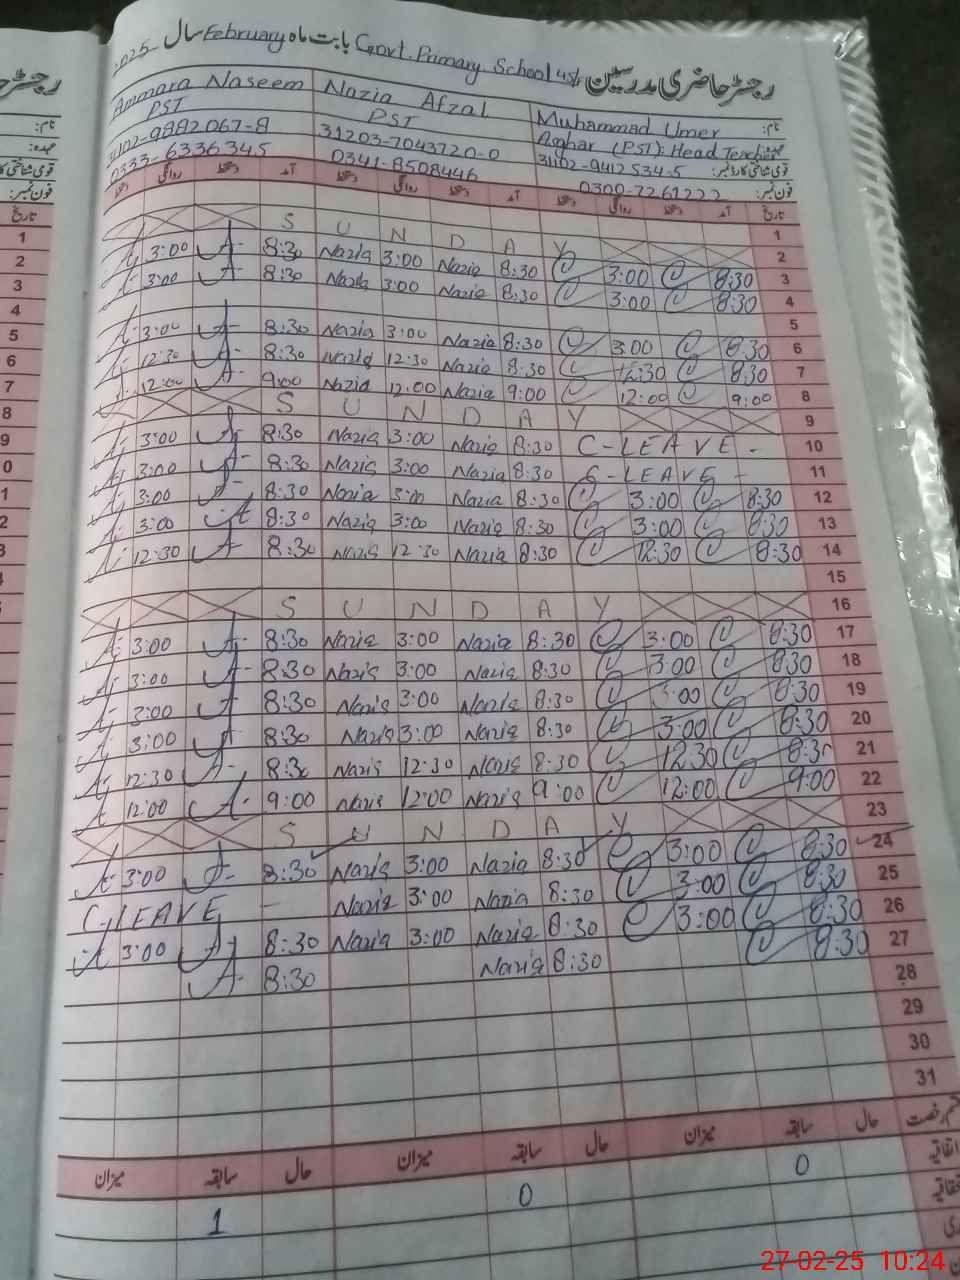 رجسٹر حاضری مدرسین Govt. Primary School بابت ماہ February سال 2025
Ammara Naseem Nazia Afzal Muhammad Umer نام:
PST PST Asghar (PST): Head Teacher
31102-9882067-8 31203-7043720-0 31102-9412534-5 قومی شناختی کارڈ نمبر:
0333-6336345 0341-8508446 0300-7261222 فون نمبر:
دستخط روانگی دستخط آمد دستخط روانگی دستخط آمد دستخط روانگی دستخط آمد تاریخ
1
S U N D A Y 2
A 3:00 A 8:30 Nazia 3:00 Nazia 8:30 3:00 8:30 3
A 3:00 A 8:30 Nazia 3:00 Nazia 8:30 3:00 8:30 4
5
A 3:00 A 8:30 Nazia 3:00 Nazia 8:30 3:00 8:30 6
A 12:30 A 8:30 Nazia 12:30 Nazia 8:30 12:30 8:30 7
A 12:00 A 9:00 Nazia 12:00 Nazia 9:00 12:00 9:00 8
S U N D A Y 9
A 3:00 A 8:30 Nazia 3:00 Nazia 8:30 C-LEAVE- 10
A 3:00 A 8:30 Nazia 3:00 Nazia 8:30 C-LEAVE- 11
A 3:00 A 8:30 Nazia 3:00 Nazia 8:30 3:00 8:30 12
A 3:00 A 8:30 Nazia 3:00 Nazia 8:30 3:00 8:30 13
A 12:30 A 8:30 Nazia 12:30 Nazia 8:30 12:30 8:30 14
15
S U N D A Y 16
A 3:00 A 8:30 Nazia 3:00 Nazia 8:30 3:00 8:30 17
A 3:00 A 8:30 Nazia 3:00 Nazia 8:30 3:00 8:30 18
A 3:00 A 8:30 Nazia 3:00 Nazia 8:30 3:00 8:30 19
A 3:00 A 8:30 Nazia 3:00 Nazia 8:30 3:00 8:30 20
A 12:30 A 8:30 Nazia 12:30 Nazia 8:30 12:30 8:30 21
A 12:00 A 9:00 Nazia 12:00 Nazia 9:00 12:00 9:00 22
S U N D A Y 23
A 3:00 A 8:30 Nazia 3:00 Nazia 8:30 3:00 8:30 24
C-LEAVE - Nazia 3:00 Nazia 8:30 3:00 8:30 25
A 3:00 A 8:30 Nazia 3:00 Nazia 8:30 3:00 8:30 26
A 8:30 Nazia 8:30 8:30 27
28
29
30
31
میزان سابقہ حال میزان سابقہ حال میزان سابقہ حال رخصت
1 0 0 اتفاقیہ
27-02-25 10:24